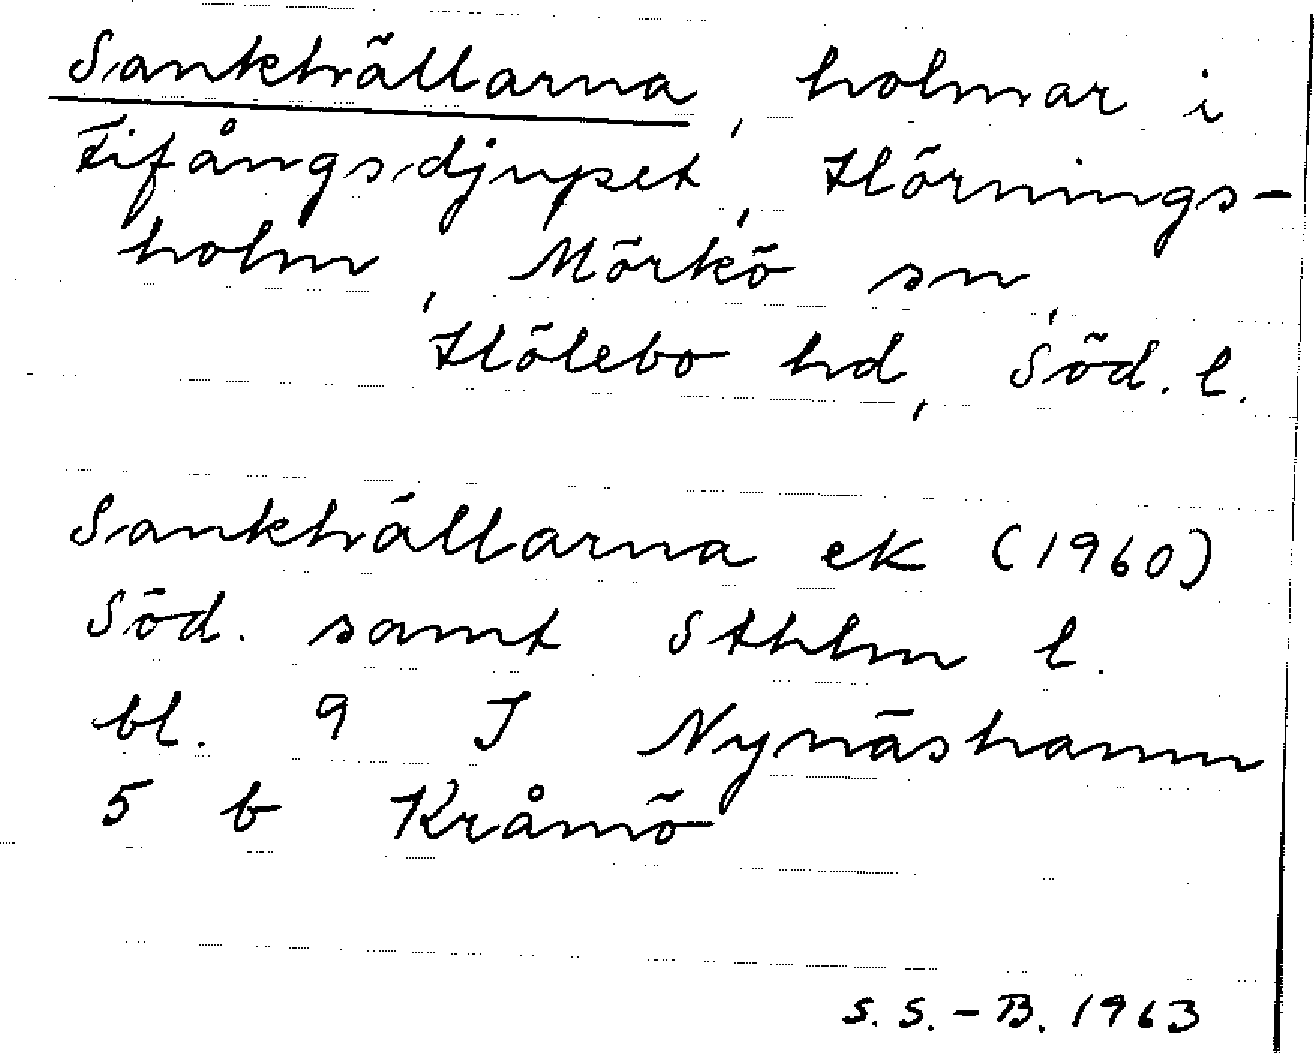 Sankhällarna, holmar i
Fifångsdjupet, Hörnings-
holm, Mörkö sn,
Hölebo hd, Söd. l.
Sankhällarna ek (1960)
Söd. samt Sthlm l.
bl. 9 I Nynäshamn
5 b Kråmö
S. S.-B. 1963